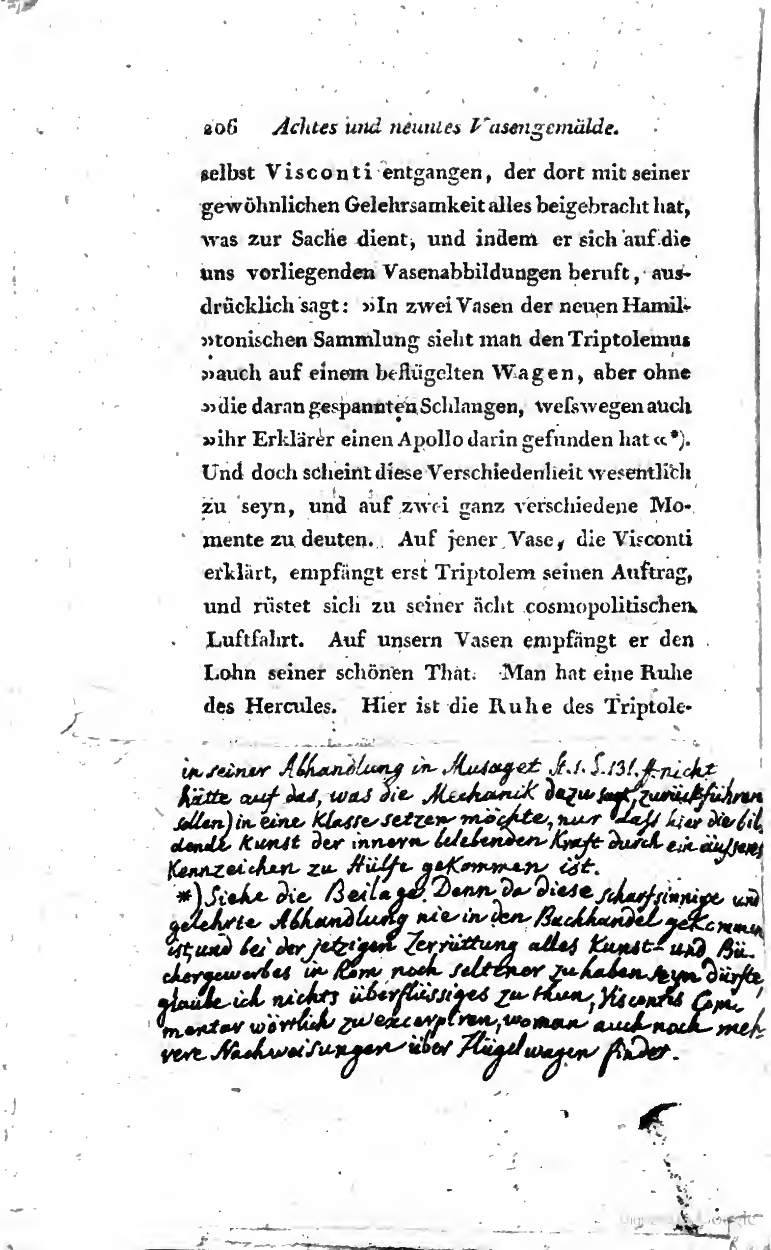 206 Achtes und neuntes Vasengemälde.
selbst Visconti entgangen, der dort mit seiner
gewöhnlichen Gelehrsamkeit alles beigebracht hat,
was zur Sache dient, und indem er sich auf die
uns vorliegenden Vasenabbildungen beruft, aus-
drücklich sagt: »In zwei Vasen der neuen Hamil-
»tonischen Sammlung sieht man den Triptolemus
»auch auf einem beflügelten Wagen, aber ohne
»die daran gespannten Schlangen, weſswegen auch
»ihr Erklärer einen Apollo darin gefunden hat«*).
Und doch scheint diese Verschiedenheit wesentlich
zu seyn, und auf zwei ganz verschiedene Mo-
mente zu deuten. Auf jener Vase, die Visconti
erklärt, empfängt erst Triptolem seinen Auftrag,
und rüstet sich zu seiner ächt cosmopolitischen
Luftfahrt. Auf unsern Vasen empfängt er den
Lohn seiner schönen That. Man hat eine Ruhe
des Hercules. Hier ist die Ruhe des Triptole-
in seiner Abhandlung in Musaget St. 1. S. 131. ff. nicht
hätte auf das, was die Mechanik dazu sagt, zurückführen
sollen) in eine Klasse setzen möchte, nur daſs hier die bil
dende Kunst der innern belebenden Kraft durch ein äuſseres
Kennzeichen zu Hülfe gekommen ist.
*) Siehe die Beilage. Denn da diese scharfsinnige und
gelehrte Abhandlung nie in den Buchhandel gekommen
ist, und bei der jetzigen Zerrüttung alles Kunst- und Bü-
chergewerbes in Rom noch seltener zu haben seyn dürfte,
glaube ich nichts überflüssiges zu thun, Viscontis Com-
mentar wörtlich zu excerpiren, wo man auch noch meh-
rere Nachweisungen über Flügelwagen findet.